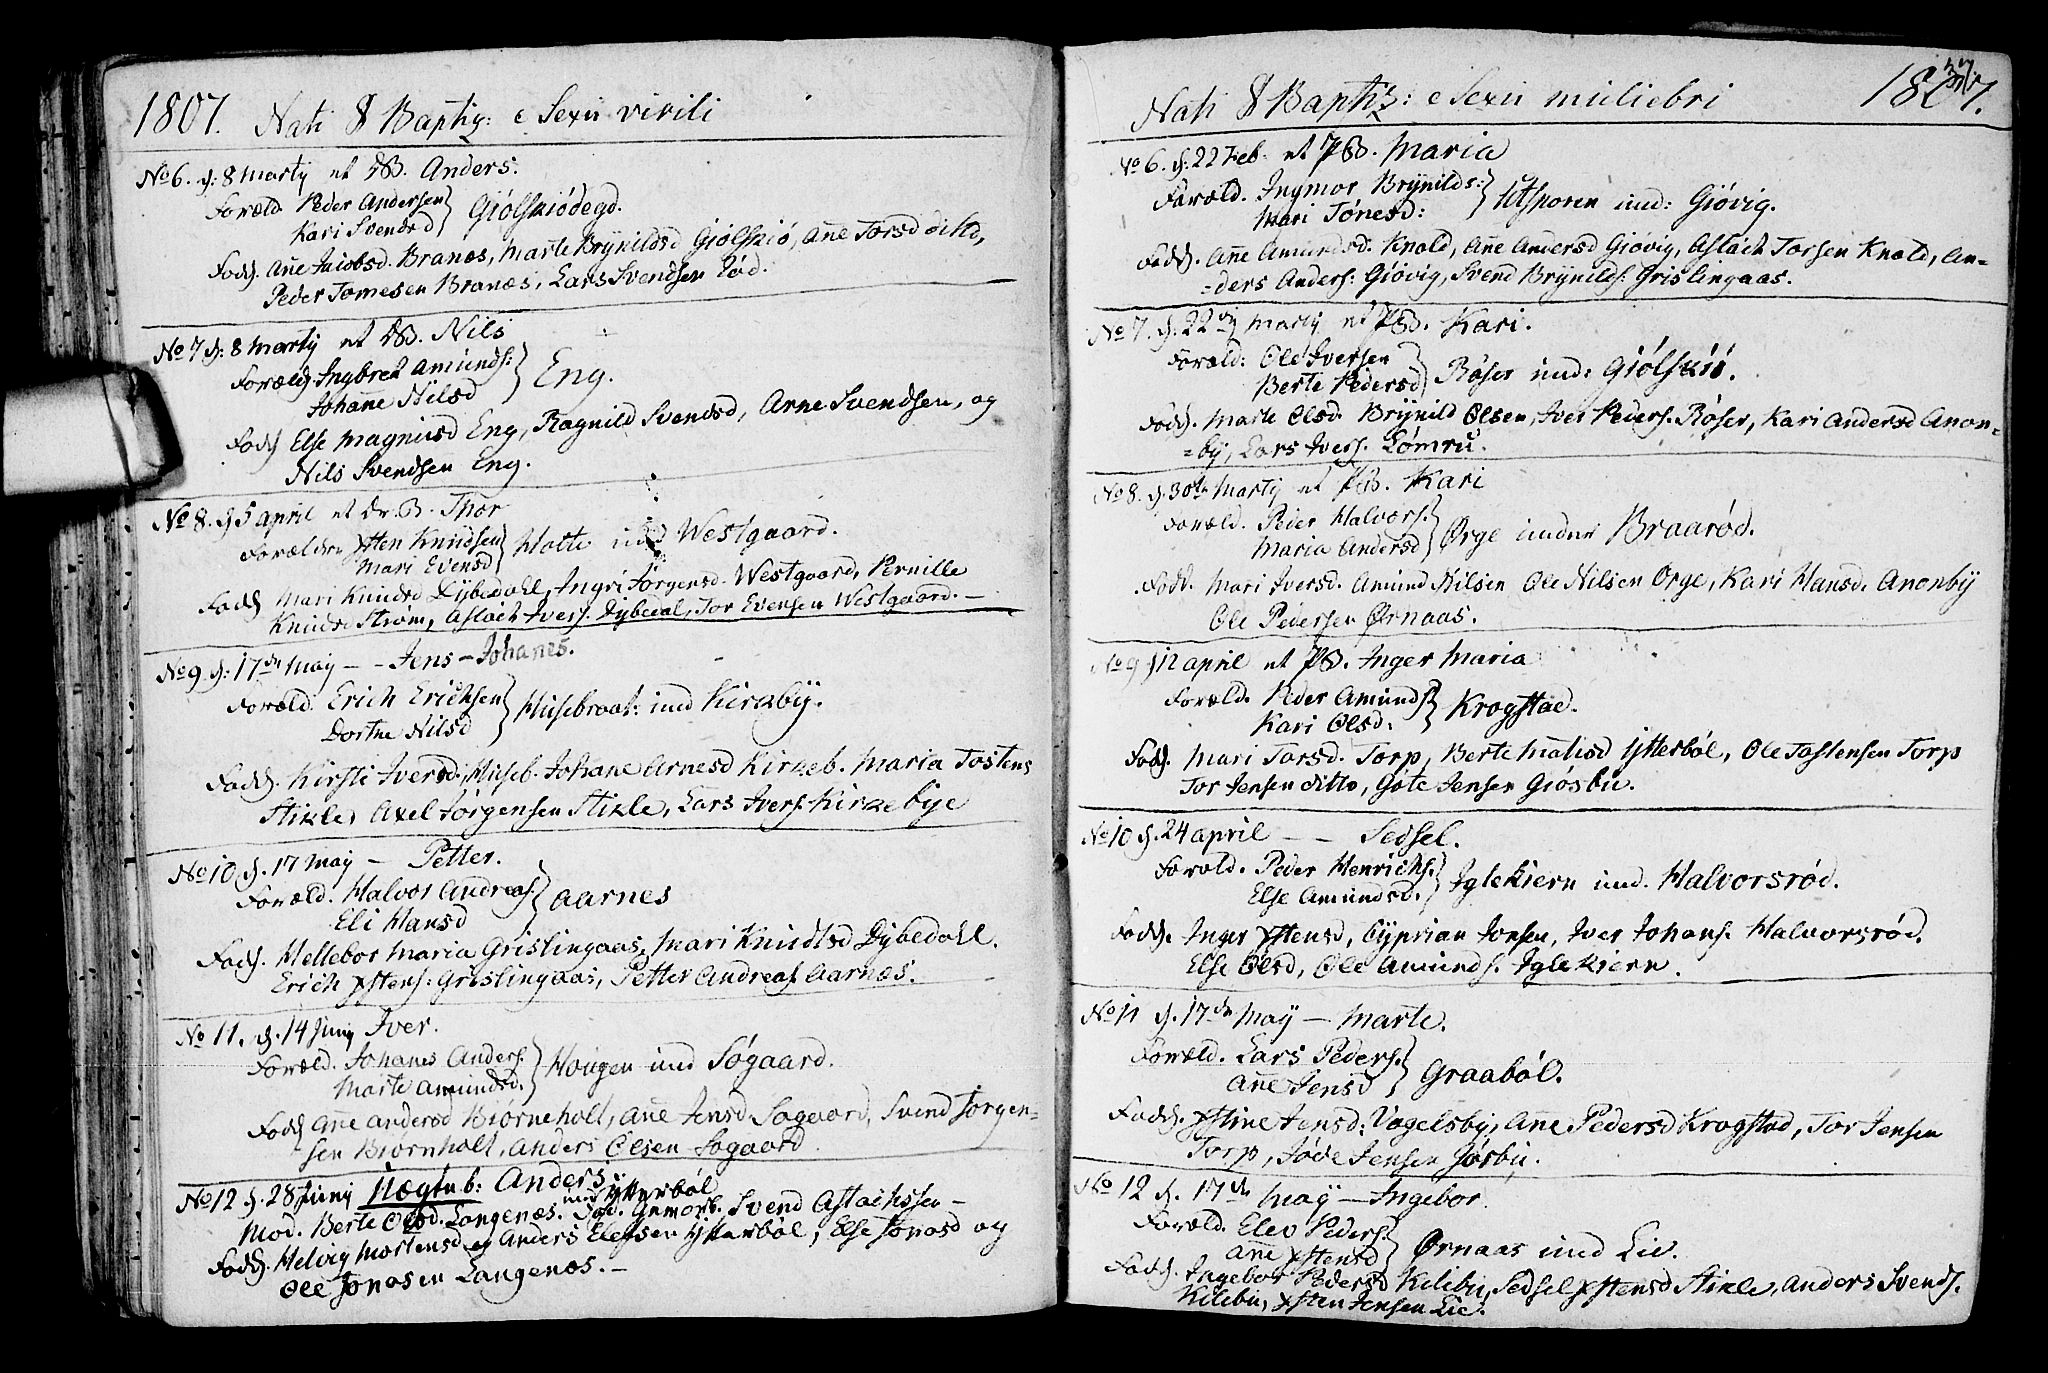 1807. Nati & Baptiz: e Sexu virili
No 6. d: 8 Martij et DB. Anders.
Foræld. Peder Andersen
Kari Svendsd } Giølsiødegd.
Fadd. Añe Jacobsd. Branæs, Marte Brynildsd Giølsiø, Añe Torsd ditto,
Peder Tomesen Branæs, Lars Svendsen Iød.
No 7 d: 8 Martij et DB. Nils
Foræld Ingbret Amunds:
Johañe Nilsd } Eng.
Fadd Else Magnusd Eng, Ragnild Svendsd, Arne Svendsen, og
Nils Svendsen Eng.
No 8. d 5 april et Dr. B. Thor
Forældre Xsten Knudsen
Mari Evensd } Holte und Westgaard.
Fadd Mari Knudsd Dybedahl, Ingri Jørgensd. Westgaard, Pernille
Knudsd Strøm, Aslach Ivers. Dybedal, Tor Evensen Westgaard. —
No 9 d: 17de May - - Jens - Johanes.
Foræld. Erich Erichsen
Dorthe Nilsd } Husebraat: und Kirkby.
Fadd. Kirsti Iversd. Huseb. Johane Arnesd Kirkeb. Maria Tostens
Stikle, Axel Jørgensen Stikle, Lars Ivers: Kirkebye
No 10 d. 17 May - Petter.
Foræld. Halvor Andreas:
Eli Hansd } Aarnes
Fadd. Hellebor Maria Grislingaas, Mari Knudtsd Dybedahl.
Erich Xstens: Grislingaas, Petter Andreas Aarnæs.
No 11. d. 14 Juny Iver.
Foræld. Johanes Anders.
Marte Amundsd. } Hougen und Søgaard.
Fadd Añe Andersd Biørneholt, Añe Jensd Søgaard, Svend Jorgen-
sen Biørnholt, Anders Olsen Søgaard
No 12 d. 28 Juny Uægteb: Anders
und Ytterbøl
Mod. Berte Olsd. Langenæs. Fad. Gunors. Svend Aslachssen -
Fadd. Helvig Mortensd og Anders Elefsen Ytterbøl, Else Jonasd og
Ole Jonasen Langenæs. —
Nati & Baptiz: e Sexu muliebri 1807.
No 6. d: 22 Feb. et DB. Maria
Foræld. Ingmor Brynilds:
Mari Tønesd: } Utsporen und: Giøvig.
Fadd. Añe Amundsd. Knold, Añe Andersd Giøvig, Aslach Torsen Knold, An-
-ders Anders: Giøvig, Svend Brynilds. Grislingaas.
No 7. d. 22 Martij et DB. Kari.
Foræld: Ole Iversen
Berte Pedersd } Røser und: Giølsiø.
Fadd. Marte Olsd. Brynild Olsen, Iver Peders. Røser, Kari Andersd Anon-
-by, Lars Ivers. Lømru.
No 8. d. 30te Martij et DB. Kari
Foræld. Peder Halvors.
Maria Andersd } Ørge under Braarød.
Fadd. Mari Iversd. Amund Nilsen Ole Nilsen Ørge, Kari Hansd. Anonby
Ole Pedersen Ørnaas.
No 9 d 12 april et DB. Inger Maria
Foræld. Peder Amunds
Kari Olsd. } Krogstad.
Fadd. Mari Torsd. Torp, Berte Matisd Ytterbøl, Ole Tostensen Torp
Tor Jensen ditto, Gøte Jensen Giøsbu.
No 10 d. 24 april - - Sedsel.
Foræld. Peder Henrichs.
Else Amundsd. } Iglekiern und. Halvorsrød.
Fadd. Inger Xstensd, Cyprian Jonsen, Iver Johans. Halvorsrød.
Else Olsd, Ole Amunds. Iglekiern.
No 11 d. 17de May - Marte.
Foræld. Lars Peders.
Añe Jensd } Graabøl.
Fadd. Xstine Jensd: Vogelsby, Añe Pedersd Krogstad, Tor Jensen
Torp, Jøde Jensen Jøsbu.
No 12 d. 17de May - Ingebor
Foræld. Elev Peders
Añe Xstensd } Ørnaas und Lie.
Fadd. Ingebor Pedersd Kilebu, Sedsel Xstensd Stikle, Anders Svends.
Kilebu, Xsten Jensen Lie.